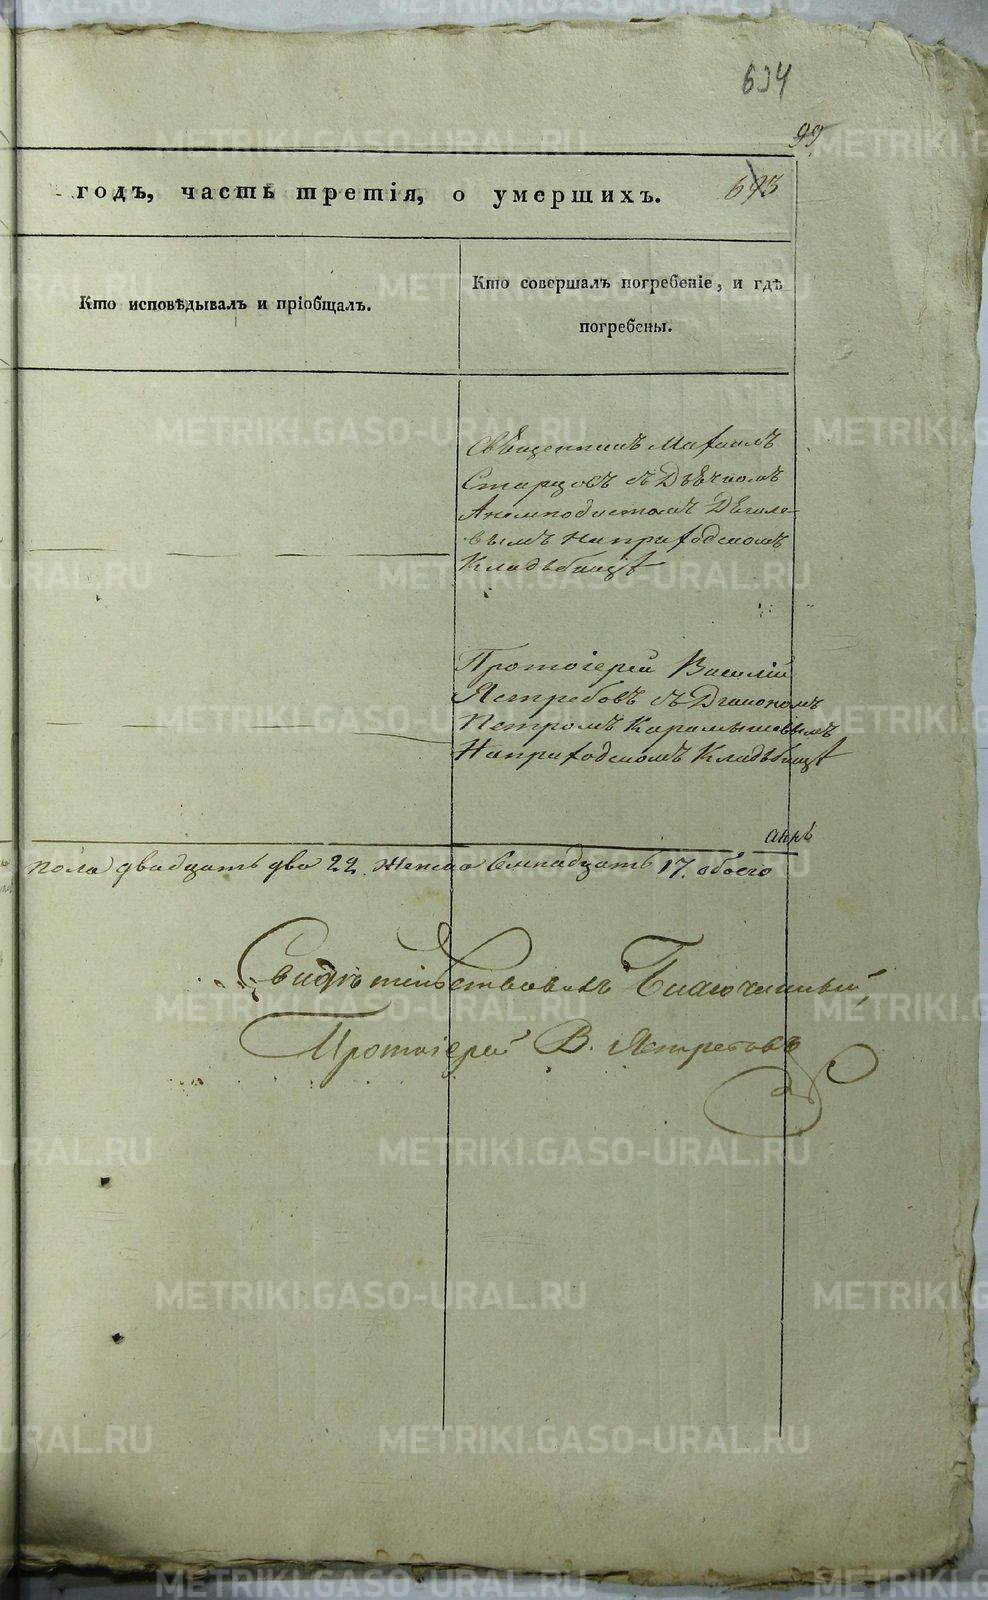 634
99
годъ, часть третія, о умершихъ.
693
Кто исповѣдывалъ и пріобщалъ.
Кто совершалъ погребеніе, и гдѣ
погребены.
Священникъ Михаилъ
Старцовъ съ Дьячкомъ
Анемподистомъ
вымъ Наприходскомъ
Кладьбищѣ
Протоіерей Василій
Ястребовъ съ Діакономъ
Петромъ Карамышевымъ
Наприходскомъ Кладьбищѣ
пола двадцать два 22. Женска семнадцать 17. обоего
Свидѣтельствовалъ Благочинный
Протоіерей В. Ястребовъ
METRIKI.GASO-URAL.RU